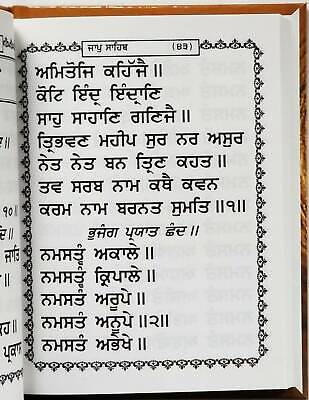 ਜਾਪੁ ਸਾਹਿਬ (੪੩)
ਅਮਿਤੋਜਿ ਕਹਿੱਜੈ॥
ਕੋਟਿ ਇੰਦ੍ਰ ਇੰਦ੍ਰਾਣਿ
ਸਾਹੁ ਸਾਹਾਣਿ ਗਣਿਜੈ॥
ਤ੍ਰਿਭਵਣ ਮਹੀਪ ਸੁਰ ਨਰ ਅਸੁਰ
ਨੇਤ ਨੇਤ ਬਨ ਤ੍ਰਿਣ ਕਹਤ॥
ਤਵ ਸਰਬ ਨਾਮ ਕਥੈ ਕਵਨ
ਕਰਮ ਨਾਮ ਬਰਨਤ ਸੁਮਤਿ॥੧॥
ਭੁਜੰਗ ਪ੍ਰਯਾਤ ਛੰਦ॥
ਨਮਸਤ੍ਵੰ ਅਕਾਲੇ॥
ਨਮਸਤ੍ਵੰ ਕ੍ਰਿਪਾਲੇ॥
ਨਮਸਤ੍ਵੰ ਅਰੂਪੇ॥
ਨਮਸਤ੍ਵੰ ਅਨੂਪੇ॥੨॥
ਨਮਸਤੰ ਅਭੇਖੇ॥